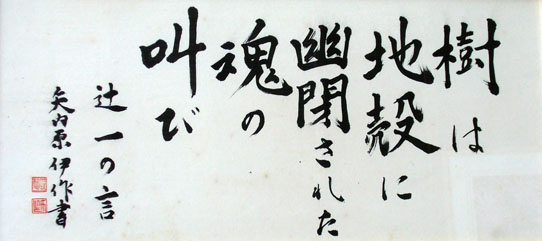 樹は
地殻に
幽閉された
魂の
叫び
辻一の言
矢内原伊作書